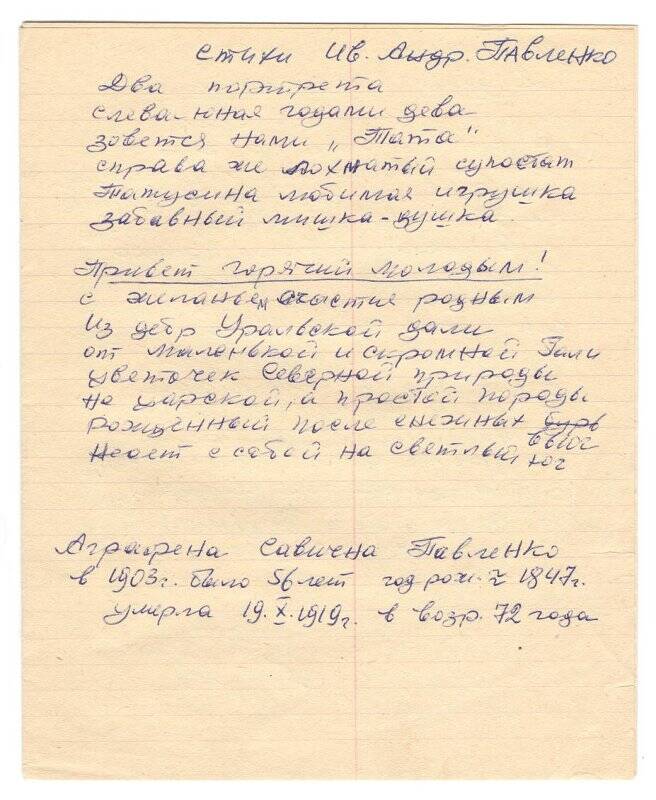 Стихи Ив. Андр. Павленко
Два портрета
слева-юная годами дева
зовется нами „Тата"
справа же лохматый супостат
Татусина любимая игрушка
забавный мишка-душка.
Привет горячий молодым!
с желаньем счастия родным
Из дебр Уральской дали
от маленькой и скромной Гали
цветочек Северной природы
не царской, а простой породы
рожденный после снежных бурь
вьюг
Несет с собой на светлый юг
Аграфена Савична Павленко
в 1903г. было 56 лет год рож. ~ 1847г.
умерла 19.X.1919г. в возр. 72 года